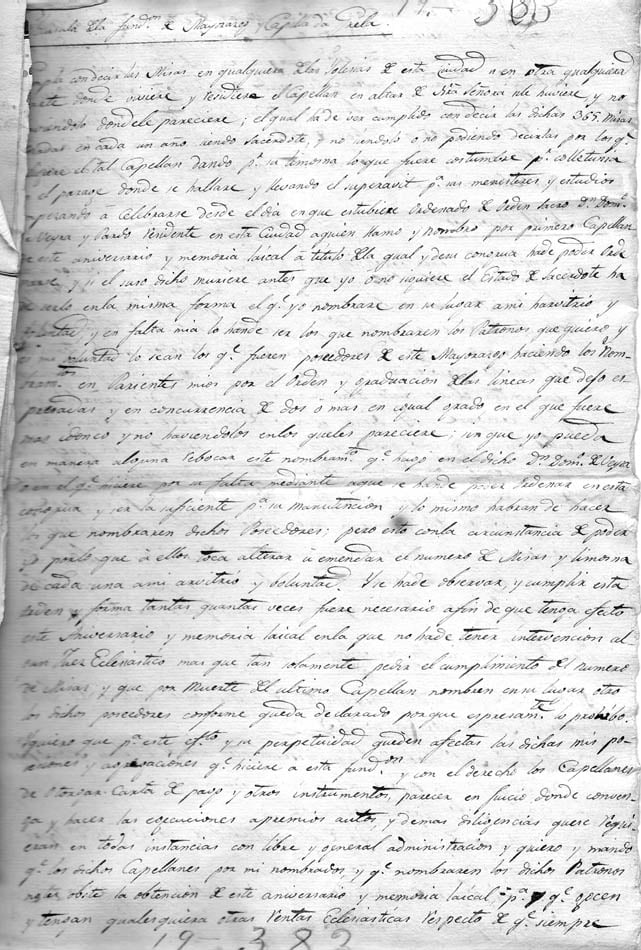 19- 383
fund.on de Mayorazgo y Capilla da Grela
con decir las Misas en qualquiera de las Yglesias de esta Ciudad u en otra qualquiera
parte donde viviere y residiere el Capellan en altar de Ntra Señora si le huviere y no
haviendolo donde le pareciere; el qual ha de ver cumplido con decir las dichas 365 Misas
en cada un año siendo Sacerdote, y no siendolo o no podiendo decirlas por los q.e
el tal Capellan dando p.a su limosna lo que fuere costumbre p.a colletursa
el parage donde se hallare y llevando el superavit p.a sus menesteres y estudios
a Celebrarse desde el dia en que estubiere Ordenado de Orden Sacro Dn. Dom.o
de Veyra y Pardo Residente en esta Ciudad a quien llamo y nombro por primero Capellan
de este aniversario y memoria laical a titulo de la qual y de su congrua hade poder Orde
y si el suso dicho muriere antes que yo o no siguiere el Estado de Sacerdote ha
de serlo en la misma forma el q.e yo nombrare en su lugar a mi harvitrio y
voluntad y en falta mia lo hande ser los que nombraren los Patronos que quiero y
es mi voluntad lo sean los q.e fueren poseedores de este Mayorazgo haciendo los Nom-
en Parientes mios por el Orden y graduacion de las lineas que dejo es-
presadas y en concurrencia de dos o mas en igual grado en el que fuere
mas idoneo y no haviendolos en los quales pareciere; sin que yo pueda
en manera alguna rebocar este nombram.to q.e hago en el dicho Dn. Dom.o de Veyra
o en el q.e hiciere por su falta mediante a que se hande poder Ordenar en esta
congrua y ser la suficiente p.a su manutencion y lo mismo habran de hacer
los que nombraren dichos Poseedores; pero esto con la circunstancia de poder
yo por lo que à ellos toca alterar ù emendar el numero de Misas y limosna
de cada una a mi arvitrio y voluntad. Y se hade observar y cumplir esta
orden y forma tantas quantas veces fuere necesario a fin de que tenga efecto
este Aniversario y memoria laical en la que no hade tener intervencion al-
gun Juez Eclesiastico mas que tan solamente pedir el cumplimiento del numero
de Misas, y que por Muerte del ultimo Capellan nombren en su lugar otro
los dichos poseedores conforme queda declarado porque espresam.te lo prohibo.
Y quiero que p.a este ef.to y su perpetuidad queden afectas las dichas mis po-
y agregaciones q.e hiciere a esta fund.on y con el derecho los Capellanes
de Otorgar Carta de pago y otros instrumentos, parecer en Juicio donde conven-
ga y hacer las egecuciones apremios autos y demas diligencias que se requi-
eran en todas instancias con libre y general administracion y quiero y mando
q.e los dichos Capellanes por mi nombrados y q.e nombraren los dichos Patronos
obste la obtencion de este aniversario y memoria laical p.a q.e gocen
y tengan qualesquiera otras Rentas Eclesiasticas respecto de q.e siempre
19- 382